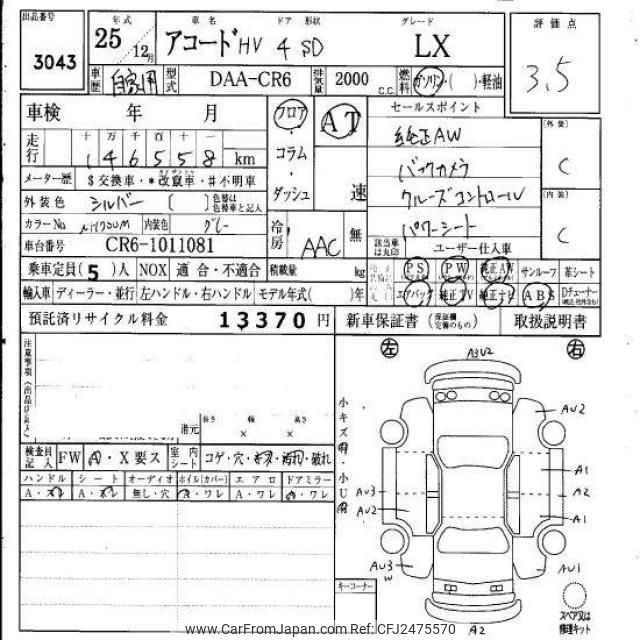 出品番号
3043
年式
25 12月
車名
アコードHV
ドア 形状
4 SD
グレード
LX
評価点
3.5
車歴 自家用
型式 DAA-CR6
排気量 2000 C.C.
燃料 ガソリン・( )・軽油
車検 年 月
走行
十 万 千 百 十 一
146558 km
メーター歴 $ 交換車・*改竄車・#不明車
外装色 シルバー ( ) 色替は色替車と記入
カラーNo NH700M 内装色 グレー
車台番号 CR6-1011081
フロア・コラム・ダッシュ
AT
速
冷房 AAC 無
セールスポイント
純正AW
バックカメラ
クルーズコントロール
パワーシート
該当車は丸印
ユーザー仕入車
[外装]
C
[内装]
C
乗車定員(5)人 NOX 適合・不適合 積載量 kg
PS PW 純正AW サンルーフ 革シート
輸入車 ディーラー・並行 左ハンドル・右ハンドル モデル年式( )年
エアバッグ 純正TV 純正ナビ ABS Dチューナー
預託済リサイクル料金 13370 円 新車保証書 (保証欄完備のもの) 取扱説明書
注意事項(出品店記入)
諸元 長さ × 幅 × 高さ
検査員記入 FW A・X要ス 室内シート コゲ・穴・キズ・汚れ・破れ
ハンドル シート オーディオ ホイル(カバー) エアロ ドアミラー
A・スレ A・スレ 無し・穴 A・ワレ A・ワレ A・ワレ
小キズ有・小U有
左 右
A3U2
AU2
A1
A2
A1
AU3
AU2
AU3
W
AU1
A2
キーコーナー
スペア又は修理キット
www.CarFromJapan.com Ref:CFJ2475570